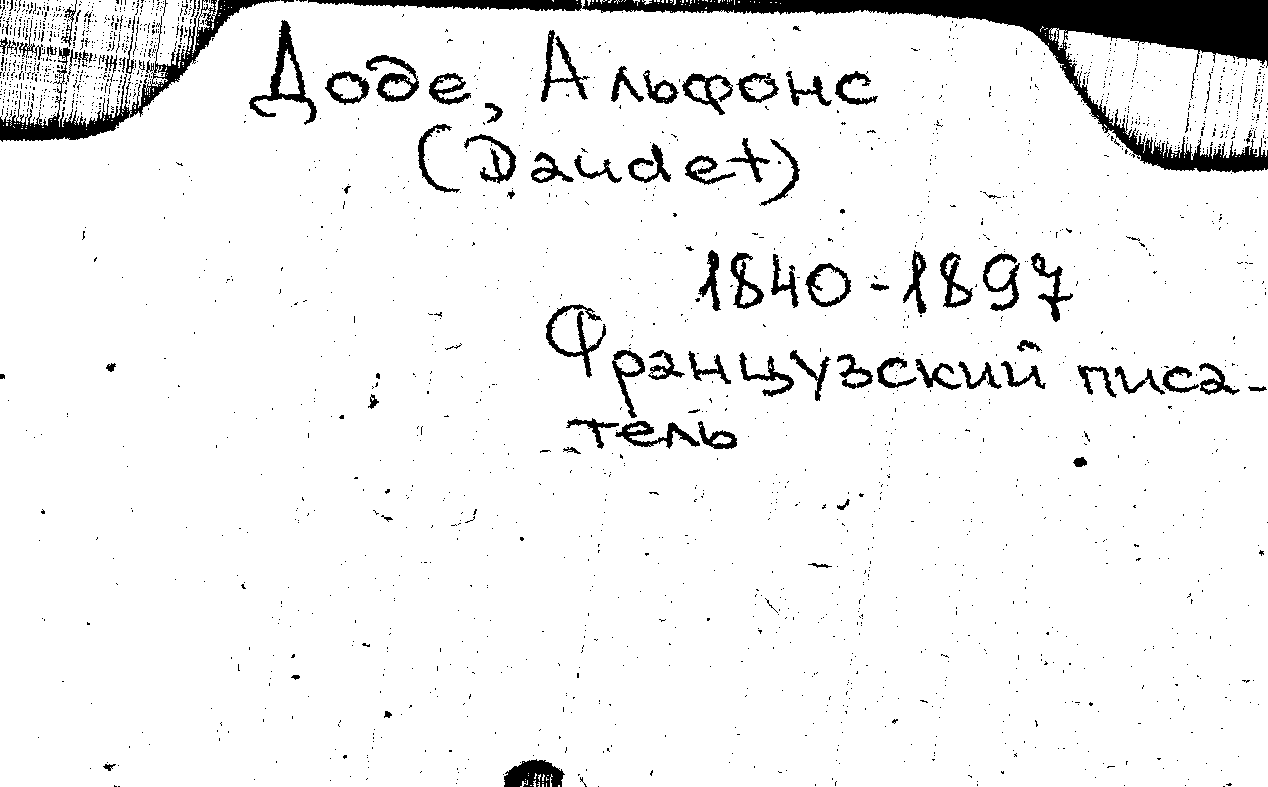 Доде, Альфонс
(Daudet)
1840-1897
Французский писа-
тель